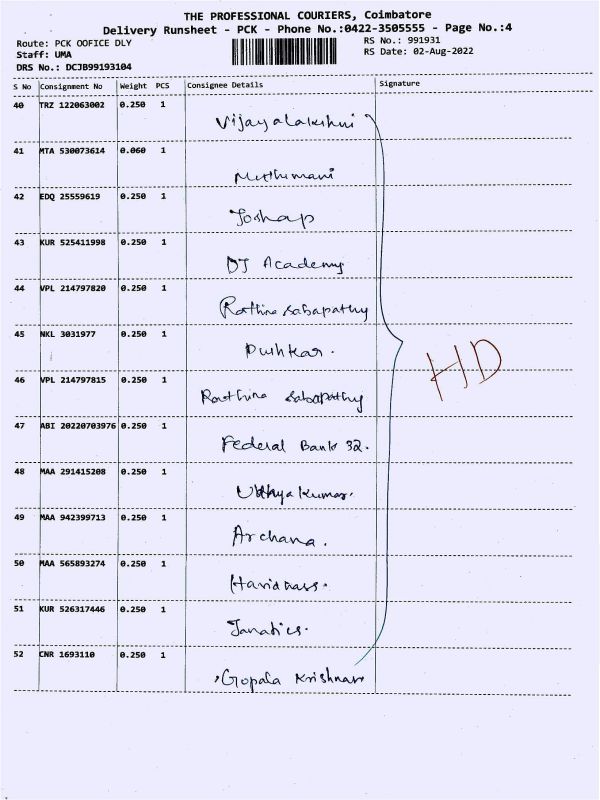 THE PROFESSIONAL COURIERS, Coimbatore
Delivery Runsheet - PCK - Phone No.:0422-3505555 - Page No.:4
Route: PCK OOFICE DLY
RS No.: 991931
Staff: UMA
RS Date: 02-Aug-2022
DRS No.: DCJB99193104
S No Consignment No Weight PCS Consignee Details Signature
40 TRZ 122063002 0.250 1
Vijayalakshni
41 MTA 530073614 0.060 1
Muthumani
42 EDQ 25559619 0.250 1
Joshap
43 KUR 525411998 0.250 1
DJ Academy
44 VPL 214797820 0.250 1
Rathina Sabapathy
45 NKL 3031977 0.250 1
Pushkar.
46 VPL 214797815 0.250 1
Rathina Sabapathy
HD
47 ABI 20220703976 0.250 1
Federal Bank 32.
48 MAA 291415208 0.250 1
Uthayakumar.
49 MAA 942399713 0.250 1
Archana.
50 MAA 565893274 0.250 1
Haridhass.
51 KUR 526317446 0.250 1
Janatics.
52 CNR 1693110 0.250 1
Gopala Krishnan